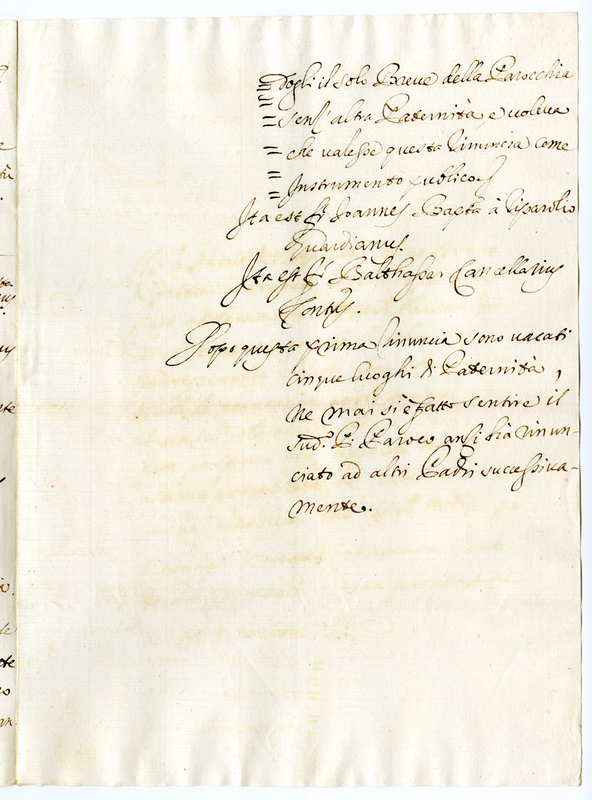 = dogli il solo Breve della Parocchia
= senz' altra Paternità e voleva
= che valesse questa rinuncia come
= Instrumento publico.
Ita est fr Joannes Bapta à
Guardianus.
Ita est fr Balthassar Cancellarius
Dopo questa prima rinuncia sono vacati
cinque luoghi di Paternità,
ne mai si è fatto sentire il
sud.º P. Paroco anzi hà rinun-
ciato ad altri Padri successiva-
mente.